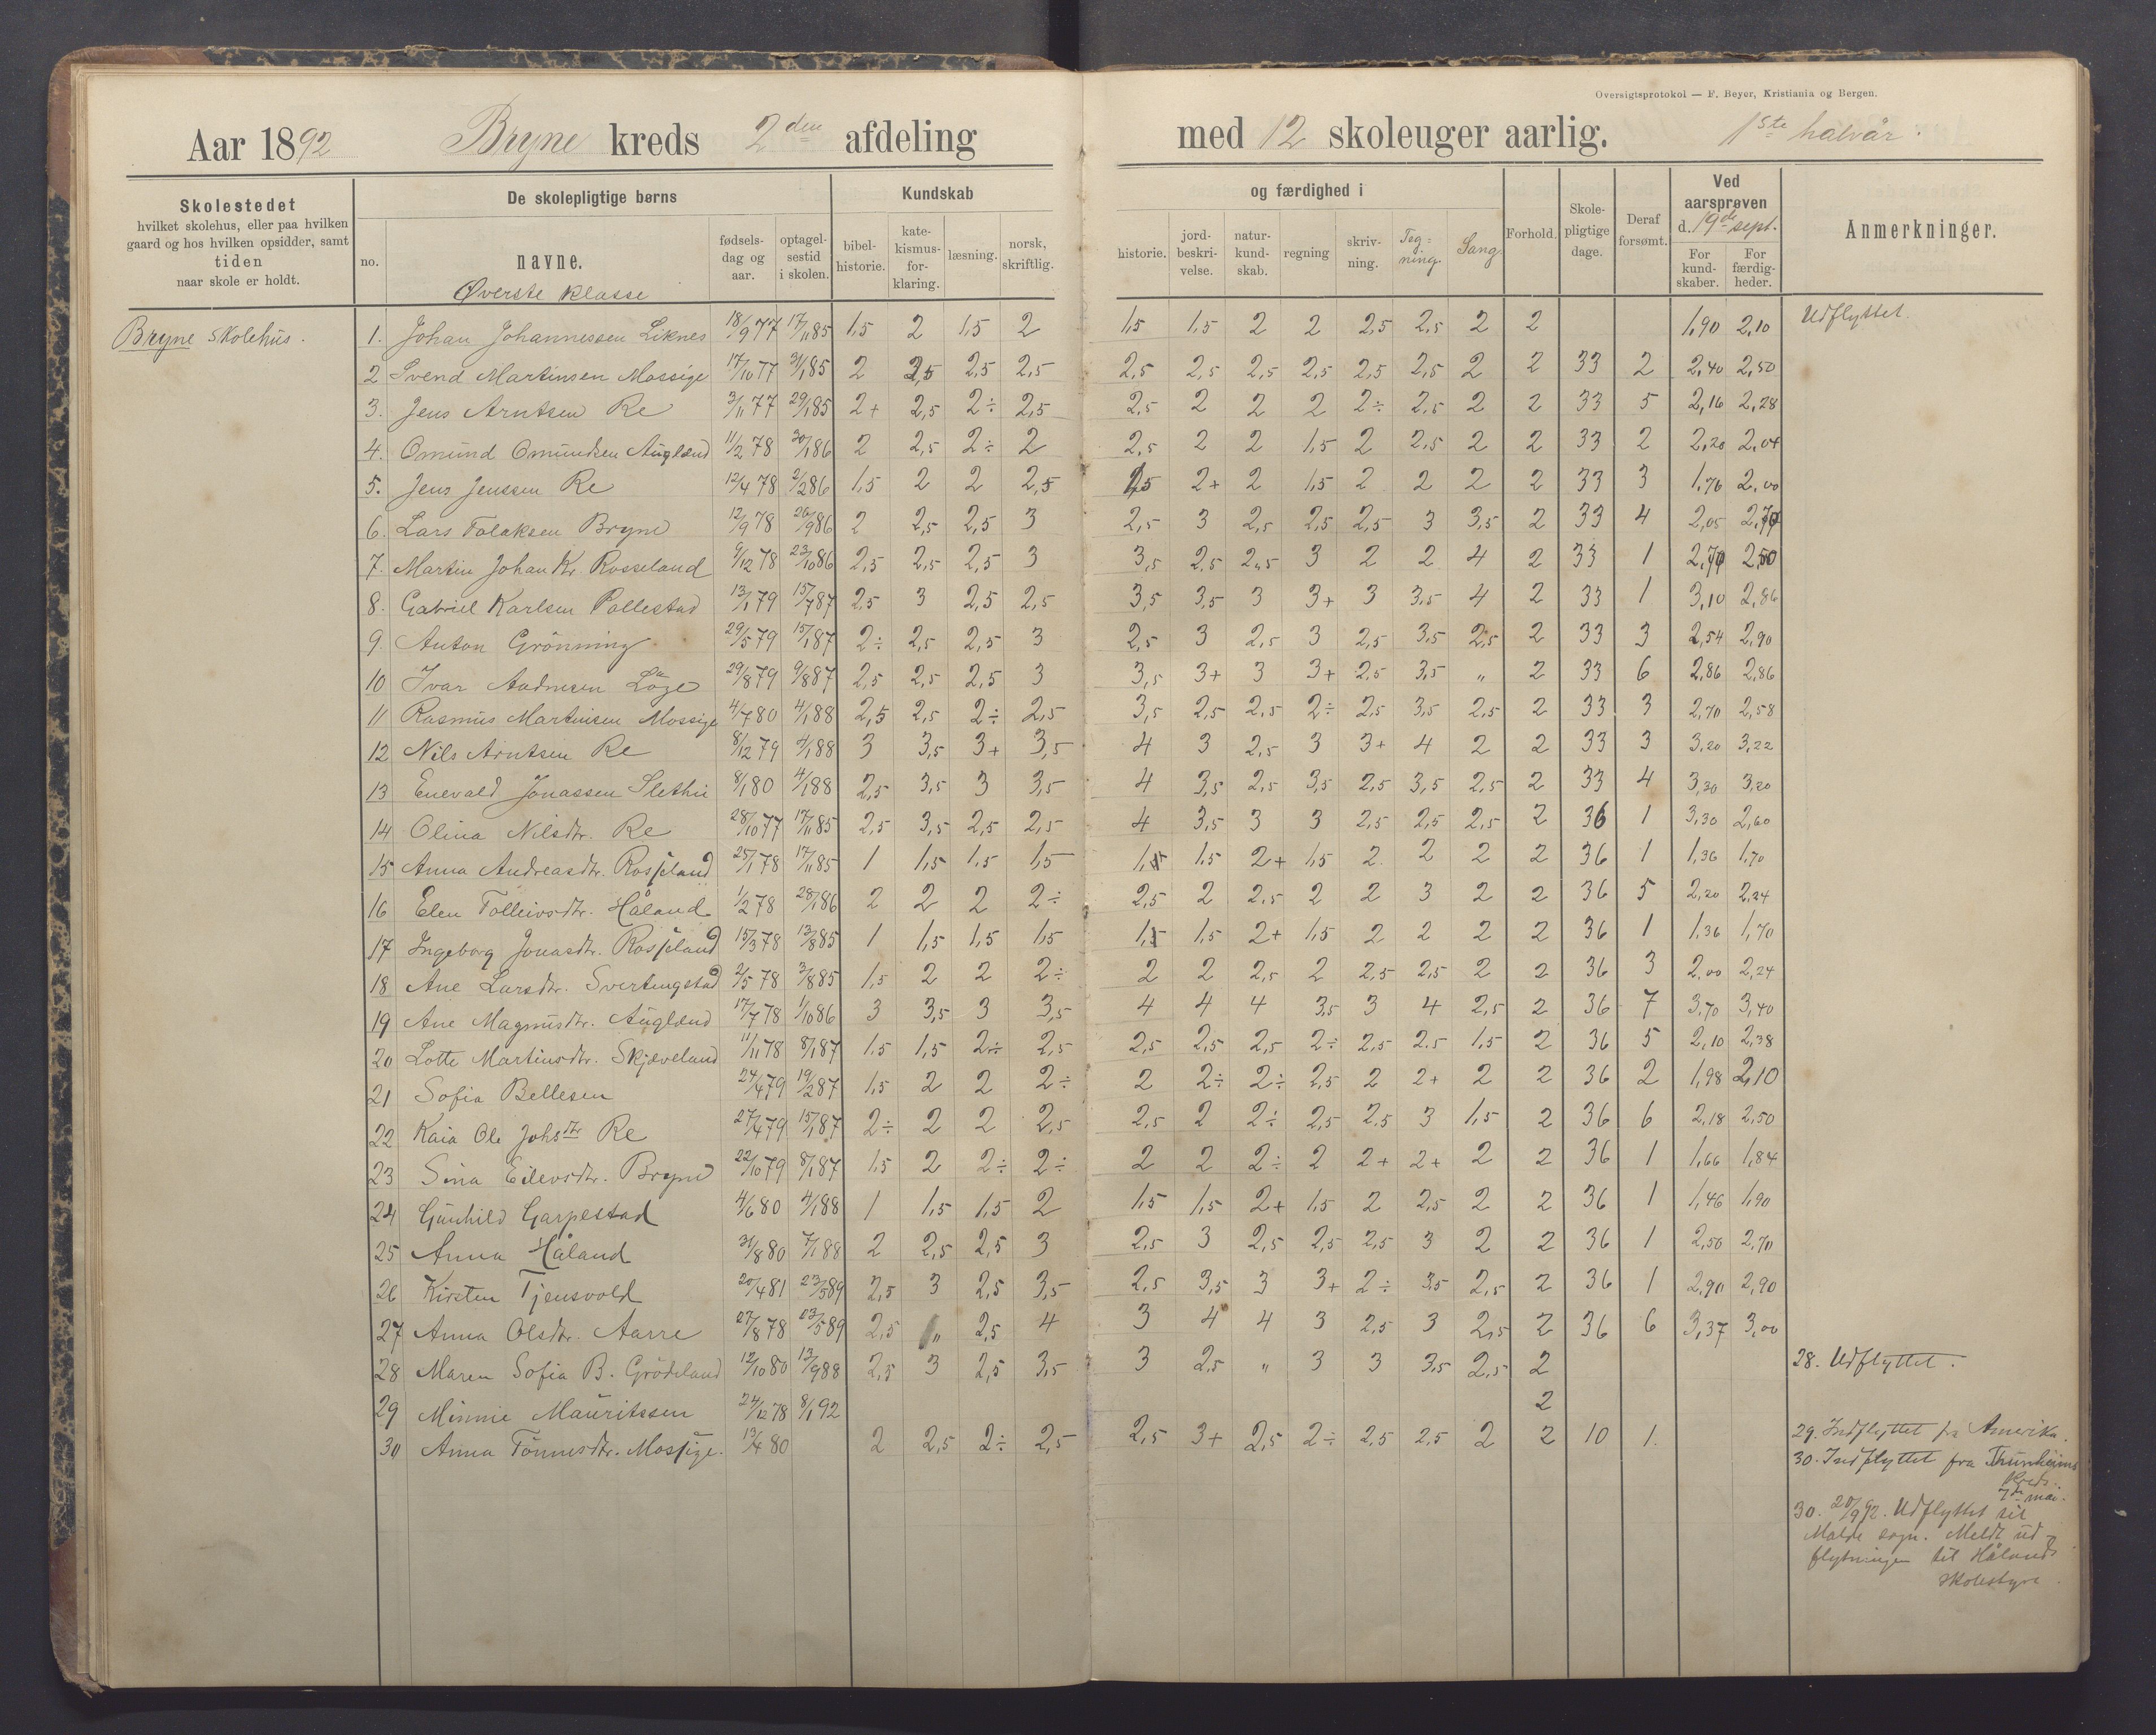 Oversigtsprotokol — F. Beyer, Kristiania og Bergen.
Aar 1892 Bryne kreds 2den afdeling med 12 skoleuger aarlig. 1ste halvår.
Skolestedet
hvilket skolehus, eller paa hvilken
gaard og hos hvilken opsidder, samt
tiden
naar skole er holdt.
De skolepligtige børns
no.
navne.
Øverste klasse
fødsels-
dag og
aar.
optagel-
sestid
i skolen.
Kundskab
bibel-
historie.
kate-
kismus-
for-
klaring.
læsning.
norsk,
skriftlig.
og færdighed i
historie.
jord-
beskri-
velse.
natur-
kund-
skab.
regning
skriv-
ning.
Teg-
ning.
Sang.
Forhold.
Skole-
pligtige
dage.
Deraf
forsømt.
Ved
aarsprøven
d. 19de sept.
For
kund-
skaber.
For
færdig-
heder.
Anmerkninger.
Bryne skolehus.
1. Johan Johannessen Liknes 18/9 77 17/11 85 1,5 2 1,5 2 1,5 1,5 2 2 2,5 2,5 2 2 1,90 2,10 Udflyttet.
2 Svend Martinsen Mossige 17/10 77 31/1 85 2 2,5 2,5 2,5 2,5 2,5 2,5 2,5 2,5 2,5 2 2 33 2 2,40 2,50
3. Jens Arntsen Re 3/11 77 29/1 85 2+ 2,5 2÷ 2,5 2,5 2 2 2 2÷ 2,5 2 2 33 5 2,16 2,28
4. Omund Omundsen Auglænd 11/2 78 30/1 86 2 2,5 2÷ 2 2,5 2 2 1,5 2 2,5 2 2 33 2 2,20 2,04
5. Jens Jenssen Re 12/4 78 2/2 86 1,5 2 2 2,5 1,5 2+ 2 1,5 2 2 2 2 33 3 1,76 2,00
6. Lars Tolaksen Bryne 12/9 78 26/9 86 2 2,5 2,5 3 2,5 3 2,5 2,5 2,5 3 3,5 2 33 4 2,05 2,70
7. Martin Johan Kr. Rosseland 9/12 78 23/10 86 2,5 2,5 2,5 3 3,5 2,5 2,5 3 2 2 4 2 33 1 2,70 2,50
8. Gabriel Karlsen Pollestad 13/1 79 15/7 87 2,5 3 2,5 2,5 3,5 3,5 3 3+ 3 3,5 4 2 33 1 3,10 2,86
9. Anton Grönning 29/5 79 15/1 87 2÷ 2,5 2,5 3 2,5 3 2,5 3 2,5 3,5 2,5 2 33 3 2,54 2,90
10 Ivar Andresen Löge 29/8 79 9/8 87 2,5 2,5 2,5 3 3,5 3+ 3 3+ 2,5 3,5 " 2 33 6 2,86 2,86
11 Rasmus Martinsen Mossige 4/7 80 4/1 88 2,5 2,5 2÷ 2,5 3,5 2,5 2,5 2÷ 2,5 3,5 2,5 2 33 3 2,70 2,58
12 Nils Arntsen Re 8/12 79 4/1 88 3 3,5 3+ 3,5 4 3 2,5 3 3+ 4 2 2 33 3 3,20 3,22
13 Enevald Jonassen Slethei 8/1 80 4/1 88 2,5 3,5 3 3,5 4 3,5 2,5 3,5 2,5 3,5 2,5 2 33 4 3,30 3,20
14 Olina Nilsdtr. Re 28/10 77 17/11 85 2,5 3,5 2,5 2,5 4 3,5 3 3 2,5 2,5 2,5 2 36 1 3,30 2,60
15 Anna Andreasdtr. Rosseland 25/1 78 17/11 85 1 1,5 1,5 1,5 1,5 1,5 2+ 1,5 2 2 2 2 36 1 1,36 1,70
16 Elen Tolleivsdtr. Håland 1/2 78 28/1 86 2 2 2 2÷ 2,5 2 2,5 2 2 3 2 2 36 5 2,20 2,24
17 Ingeborg Jonasdtr. Rosseland 15/3 78 13/8 85 1 1,5 1,5 1,5 1,5 1,5 2+ 1,5 2 2 2 2 36 1 1,36 1,70
18 Ane Larsdtr. Svertingstad 2/5 78 3/8 85 1,5 2 2 2÷ 2 2 2,5 2 2,5 2,5 2 2 36 3 2,00 2,24
19 Ane Magnusdtr. Auglænd 17/7 78 1/10 86 3 3,5 3 3,5 4 4 4 3,5 3 4 2,5 2 36 7 3,70 3,40
20 Lotte Martinsdtr. Skjæveland 11/11 78 8/1 87 1,5 1,5 2÷ 2,5 2,5 2,5 2,5 2÷ 2,5 2,5 1,5 2 36 5 2,10 2,38
21 Sofia Bellesen 24/4 79 19/2 87 1,5 2 2 2÷ 2 2÷ 2÷ 2,5 2 2+ 2 2 36 2 1,98 2,10
22 Kaia Ole Johsdtr Re 27/4 79 15/1 87 2÷ 2 2 2,5 2,5 2 2÷ 2,5 2,5 3 1,5 2 36 6 2,18 2,50
23 Sina Eilevsdtr. Bryne 22/10 79 8/1 87 1,5 2 2÷ 2÷ 2 2 2÷ 2 2+ 2+ 2 2 36 1 1,66 1,84
24 Gunhild Garpestad 4/6 80 4/1 88 1 1,5 1,5 2 1,5 1,5 2+ 1,5 2 2,5 2 2 36 1 1,46 1,90
25 Anna Håland 31/8 80 7/1 88 2 2,5 2,5 3 2,5 3 2,5 2,5 2,5 3 2 2 36 1 2,50 2,70
26 Kirsten Tjensvold 20/4 81 23/5 89 2,5 3 2,5 3,5 2,5 3,5 3 3+ 2÷ 3,5 2,5 2 36 1 2,90 2,90
27 Anna Olsdtr. Aarre 27/8 78 23/5 89 2,5 " 2,5 4 3 4 4 3 2,5 3 2,5 2 36 6 3,37 3,00
28 Maren Sofia B. Grödeland 12/10 80 13/9 88 2,5 3 2,5 3,5 3 2,5 " 3 3 3,5 2,5 2 28. Udflyttet.
29 Minnie Mauritssen 24/12 78 8/1 92 2
30 Anna Tönnesdtr. Mossige. 13/4 80 2 2,5 2÷ 2,5 2,5 3+ 2,5 2÷ 2,5 2,5 2 2 10 1.
29. Indflyttet fra Amerika.
30. Indflyttet fra Thunheims
kreds.
7de mai.
30. 20/9 92. Udflyttet til
Malde sogn. Meldt ud-
flytningen til Hålands
skolestyre.